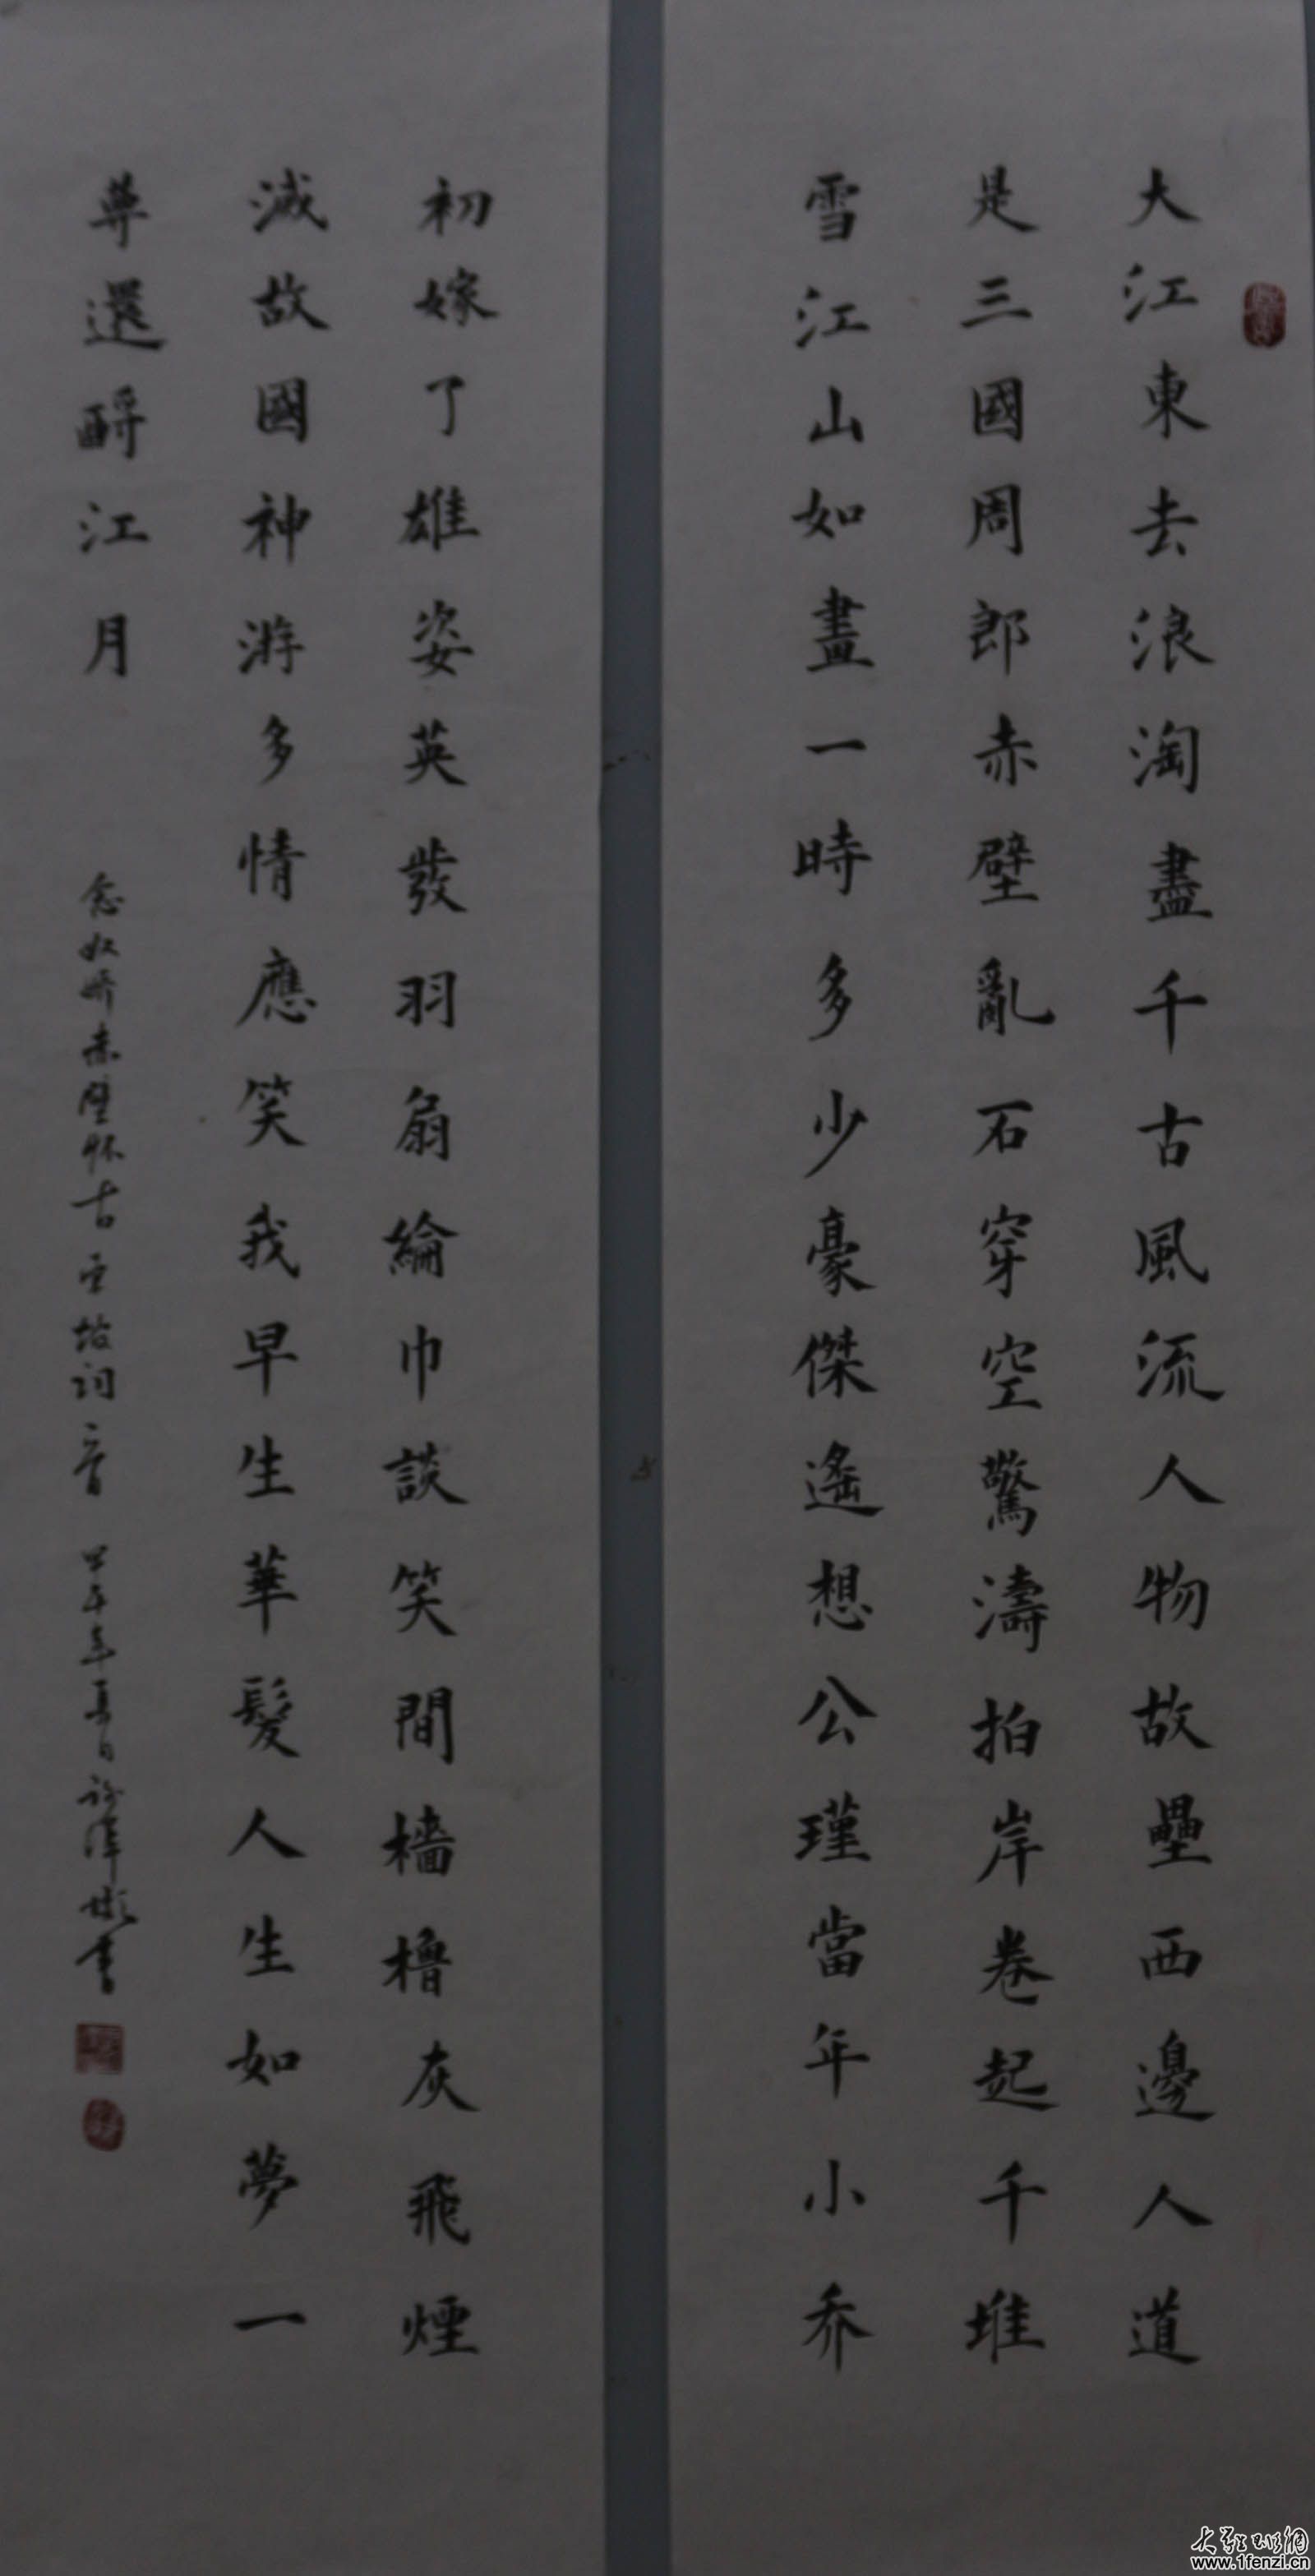 大江東去浪淘盡千古風流人物故壘西邊人道
是三國周郎赤壁亂石穿空驚濤拍岸卷起千堆
雪江山如畫一時多少豪傑遙想公瑾當年小喬
初嫁了雄姿英發羽扇綸巾談笑間檣櫓灰飛煙
滅故國神游多情應笑我早生華髮人生如夢一
尊還酹江月
念奴嬌赤壁怀古東坡词一首 甲午年夏日 書
www.1fenzi.cn